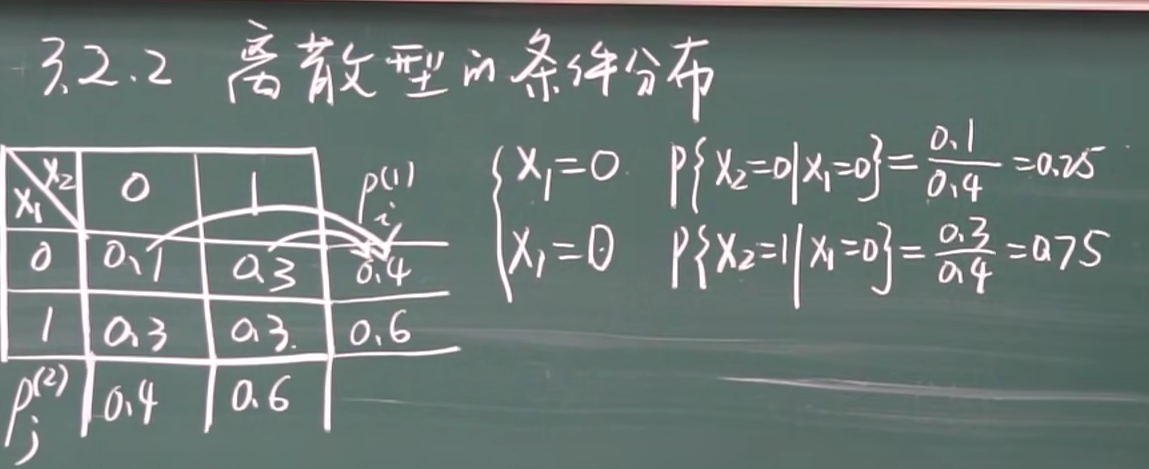 3.2.2 离散型的条件分布
X₁\X₂ 0 1 pᵢ⁽¹⁾
0 0.1 0.3 0.4
1 0.3 0.3 0.6
pⱼ⁽²⁾ 0.4 0.6
{ X₁=0 P{X₂=0|X₁=0}=0.1/0.4=0.25
X₁=0 P{X₂=1|X₁=0}=0.3/0.4=0.75